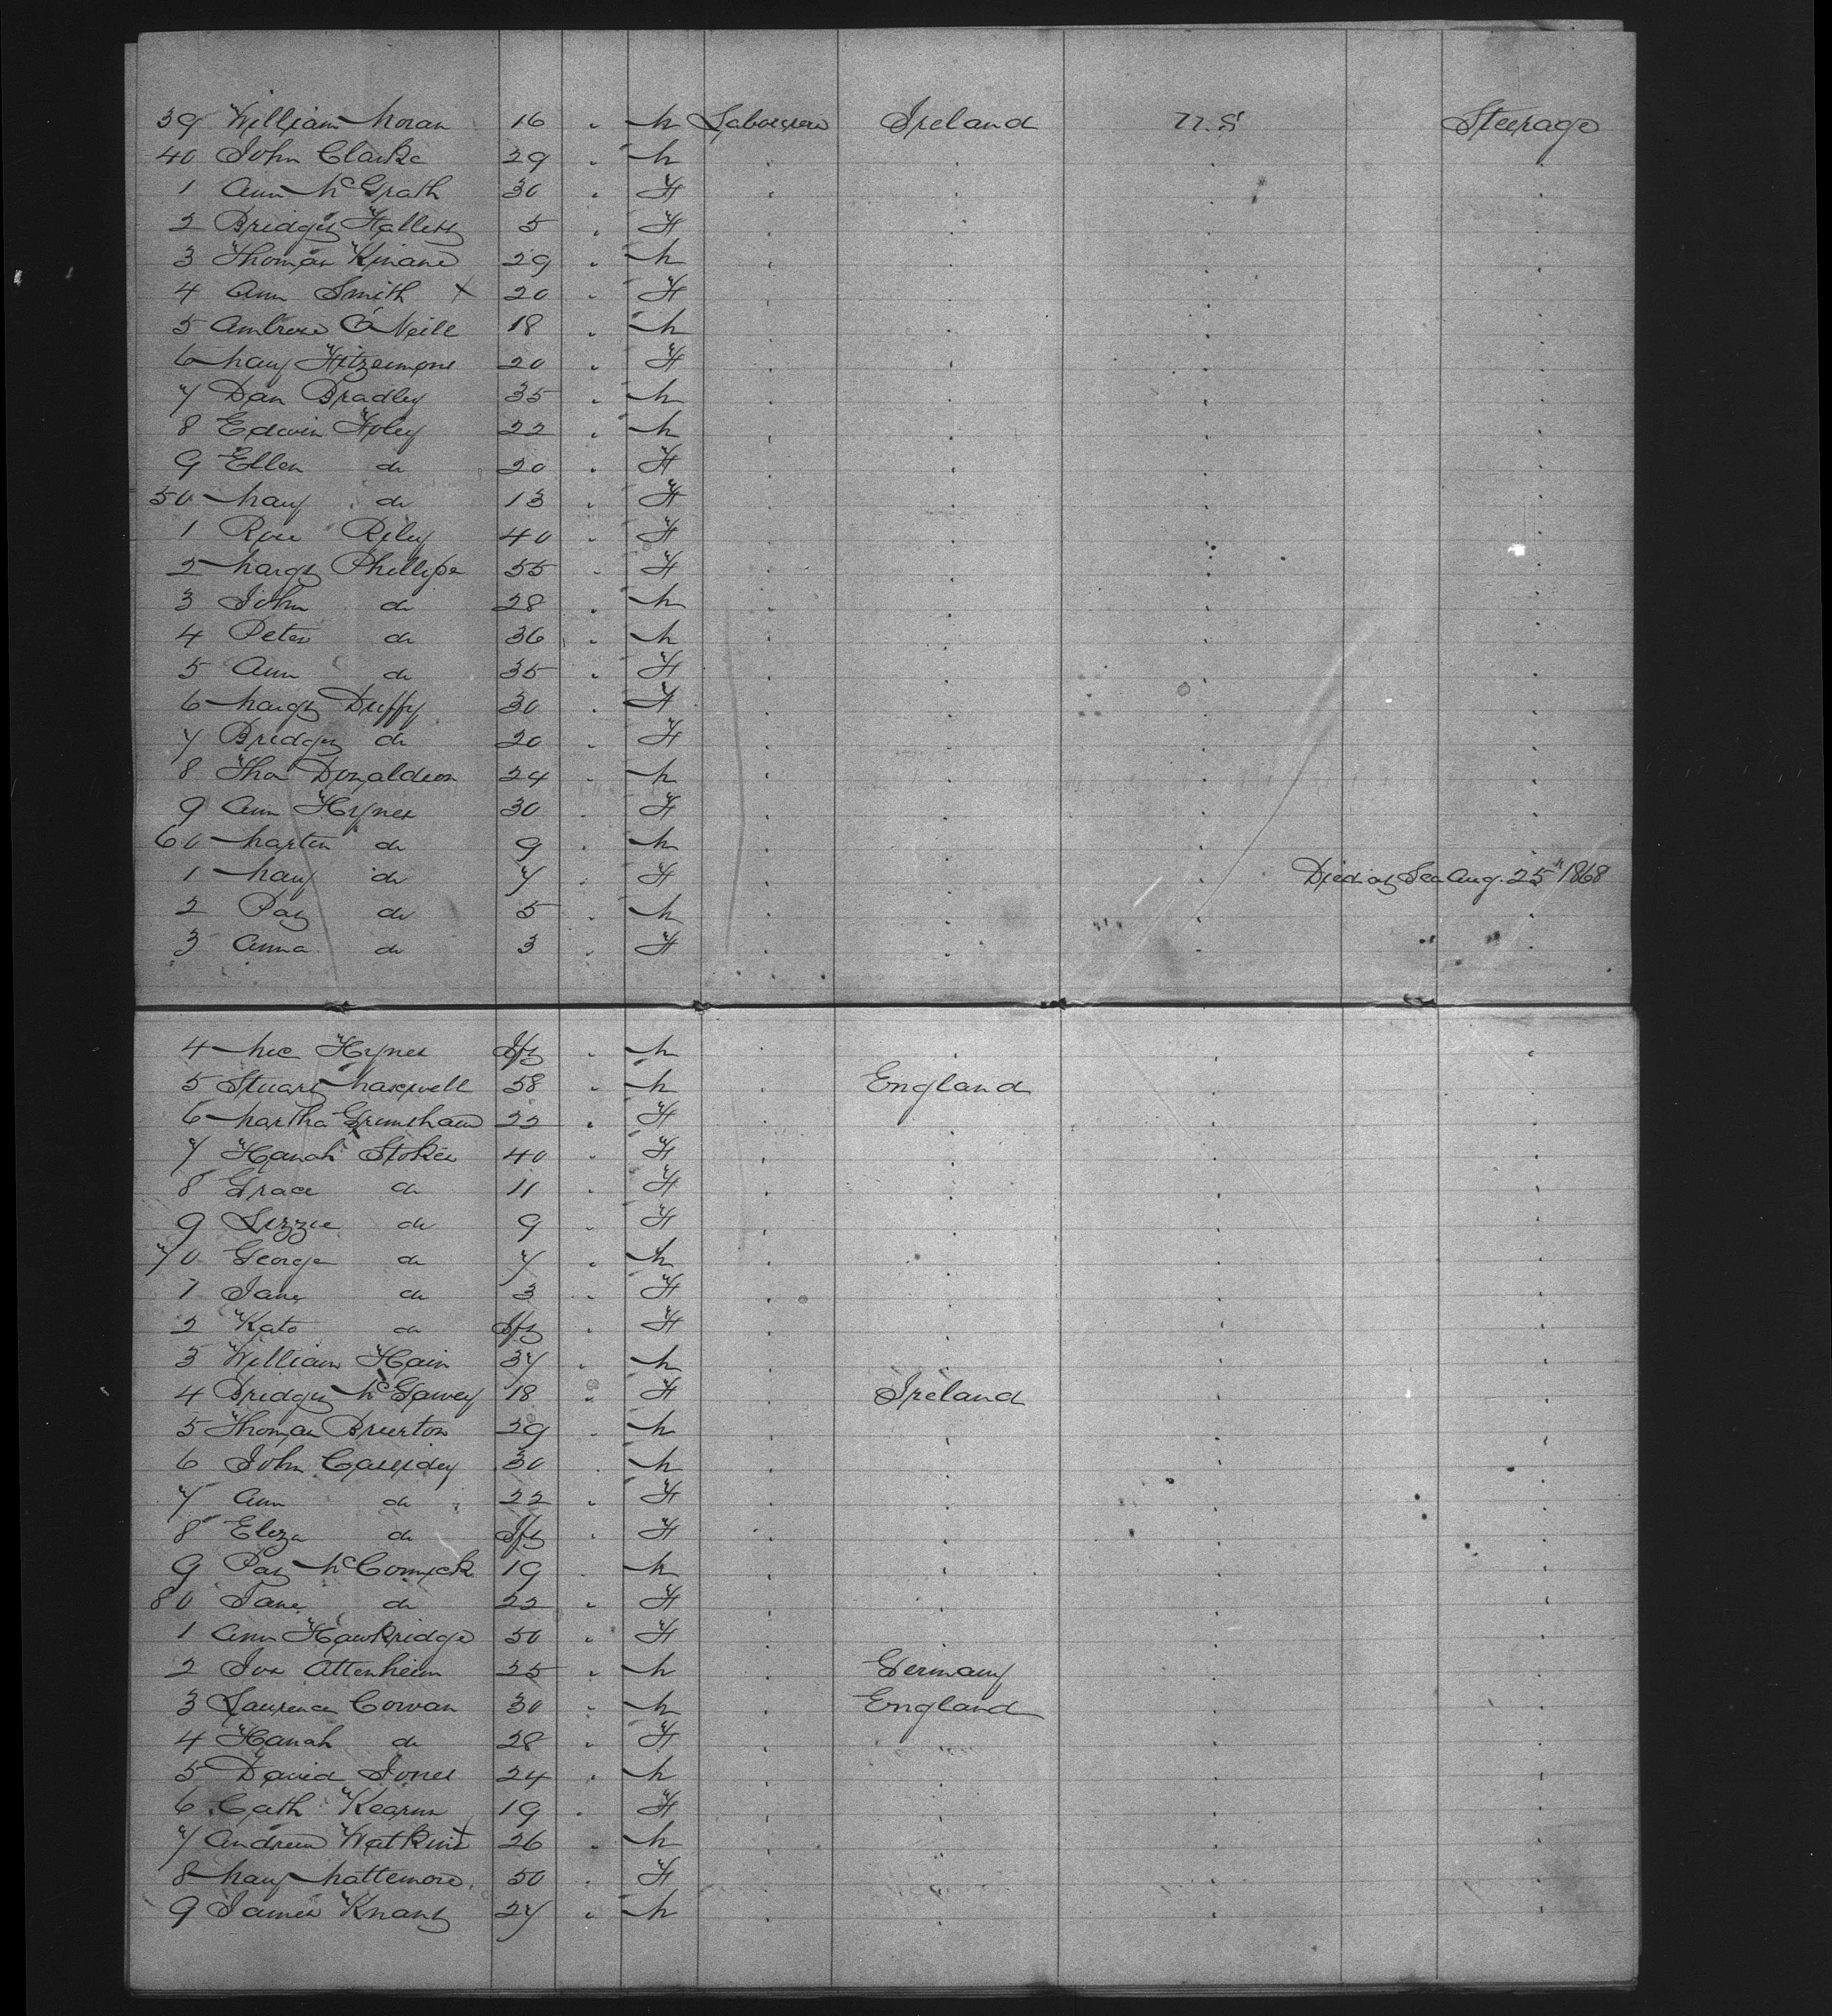 39 William Moran 16 " M Labourers Ireland U.S. Steerage
40 John Clarke 29 " M " " " "
1 Ann McGrath 30 " F " " " "
2 Bridgt Hallett 5 " F " " " "
3 Thomas Kinane 29 " M " " " "
4 Ann Smith X 20 " F " " " "
5 Ambrose O'Neill 18 " M " " " "
6 Mary Fitzsimons 20 " F " " " "
7 Dan Bradley 35 " M " " " "
8 Edwin Foley 22 " M " " " "
9 Ellen do 20 " F " " " "
50 Mary do 13 " F " " " "
1 Rose Riley 40 " F " " " "
2 Margt Phillips 55 " F " " " "
3 John do 28 " M " " " "
4 Peter do 36 " M " " " "
5 Ann do 35 " F " " " "
6 Margt Duffy 30 " F " " " "
7 Bridgt do 20 " F " " " "
8 Thos Donaldson 24 " M " " " "
9 Ann Hynes 30 " F " " " "
60 Martin do 9 " M " " " "
1 Mary do 7 " F " " " Died at Sea Aug. 25th 1868
2 Pat do 5 " M " " " "
3 Anna do 3 " F " " " "
4 Mic Hynes Inft " M " " " "
5 Stuart Maxwell 58 " M " England " "
6 Martha Grimshaw 22 " F " " " "
7 Hanah Stokes 40 " F " " " "
8 Grace do 11 " F " " " "
9 Lizzie do 9 " F " " " "
70 George do 7 " M " " " "
1 Jane do 3 " F " " " "
2 Kate do Inft " F " " " "
3 William Hain 37 " M " " " "
4 Bridgt McGawey 18 " F " Ireland " "
5 Thomas Bruerton 29 " M " " " "
6 John Cassidey 30 " M " " " "
7 Ann do 22 " F " " " "
8 Eliza do Inft " F " " " "
9 Pat McCormick 19 " M " " " "
80 Jane do 22 " F " " " "
1 Ann Hawkridge 50 " F " " " "
2 Jos Attenheim 25 " M " Germany " "
3 Laurence Cowan 30 " M " England " "
4 Hanah do 28 " F " " " "
5 David Jones 24 " M " " " "
6 Cath Kearns 19 " F " " " "
7 Andrew Watkins X 26 " M " " " "
8 Mary Mattemore 50 " F " " " "
9 James Knant 27 " M " " " "